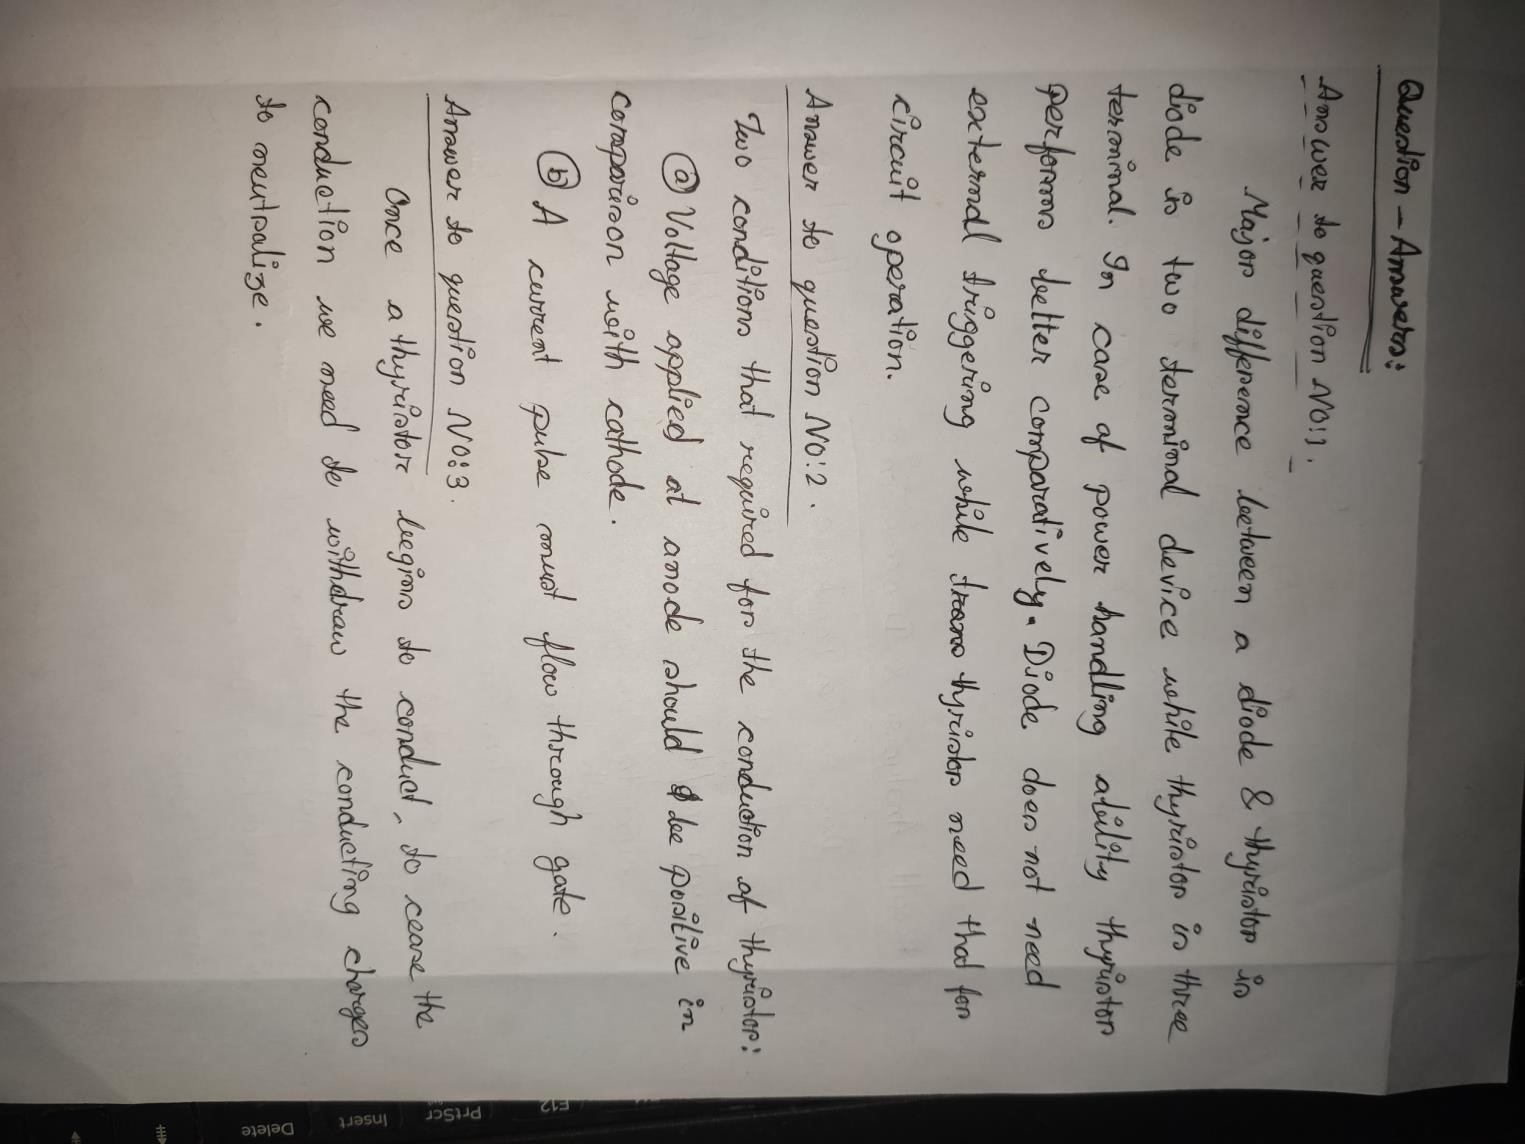 Question - Answers:
Answer to question NO:1.
Major difference between a diode & thyristor is
diode is two terminal device while thyristor is three
terminal. In case of power handling ability thyristor
performs better comparatively. Diode does not need
external triggering while thyristor need that for
circuit operation.
Answer to question NO:2.
Two conditions that required for the conduction of thyristor:
(a) Voltage applied at anode should be positive in
comparison with cathode.
(b) A current pulse must flow through gate.
Answer to question NO:3.
Once a thyristor begins to conduct, to cease the
conduction we need to withdraw the conducting charges
to neutralize.
F12
PrtScr
Insert
Delete